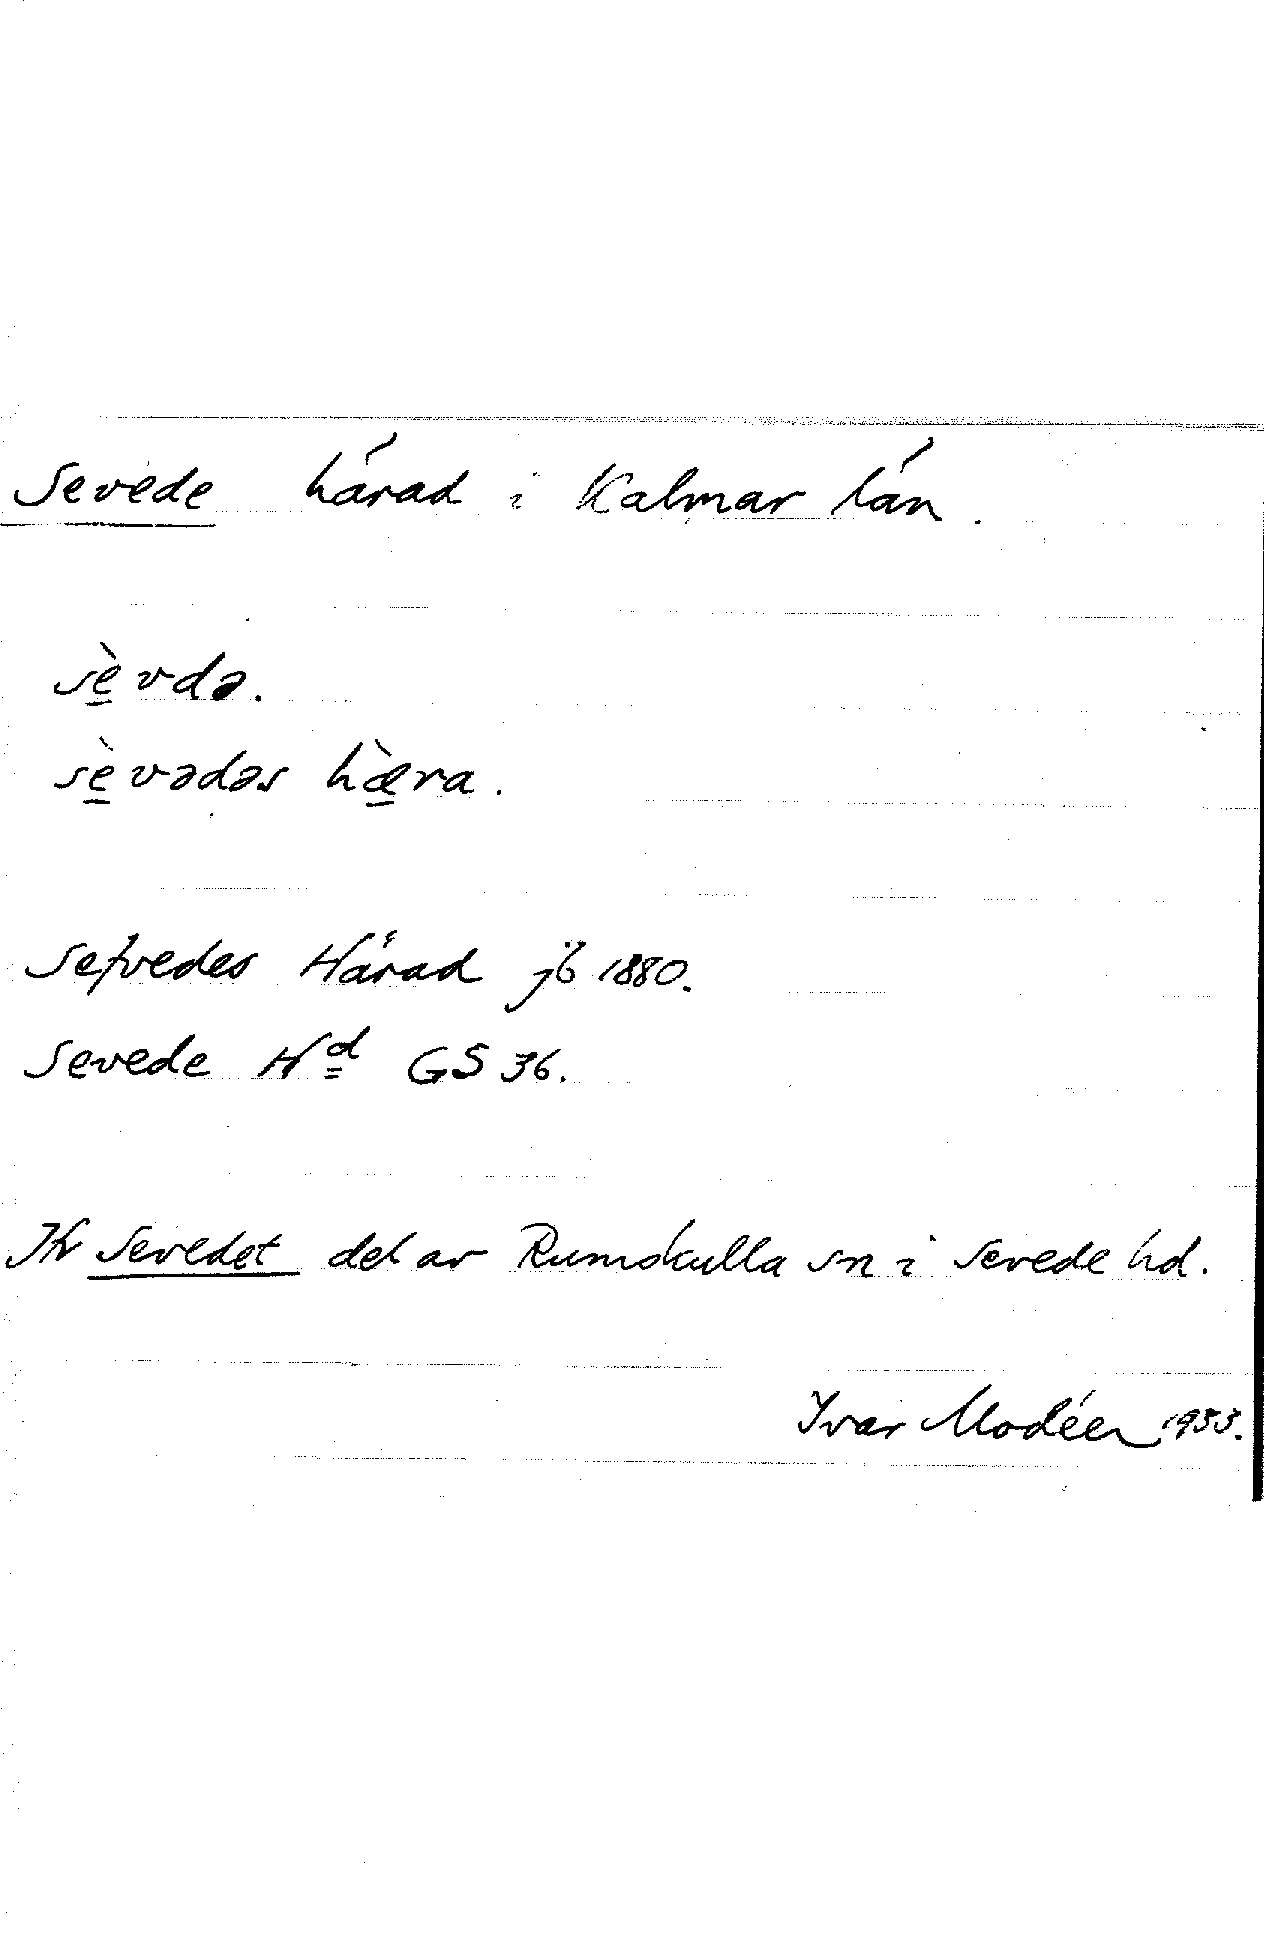 Sevede härad i Kalmar län.
sè̱vdə.
sè̱vədəs hæ̱̀ra.
Sefvedes Härad jb 1880.
Sevede Hd GS 36.
Jfr Sevedet del av Rumskulla sn i Sevede hd.
Ivar Modéer 1933.